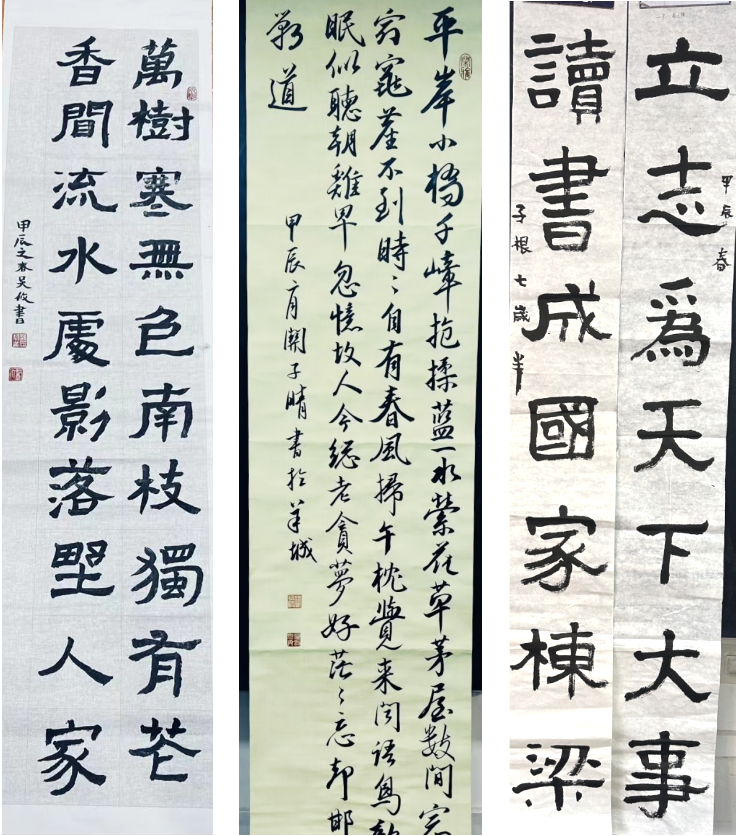 萬樹寒無色南枝獨有花
香聞流水處影落野人家
甲辰之春吴攸書
平岸小橋千嶂抱揉藍一水縈花草茅屋數間窓
窈窕塵不到時〻自有春風掃午枕覺来闻語鳥欹
眠似聽朝雞早忽憶故人今總老貪夢好茫〻忘却邯
鄲道
甲辰二月關子晴書於羊城
立志爲天下大事
甲辰春
讀書成國家棟梁
子根七歲半